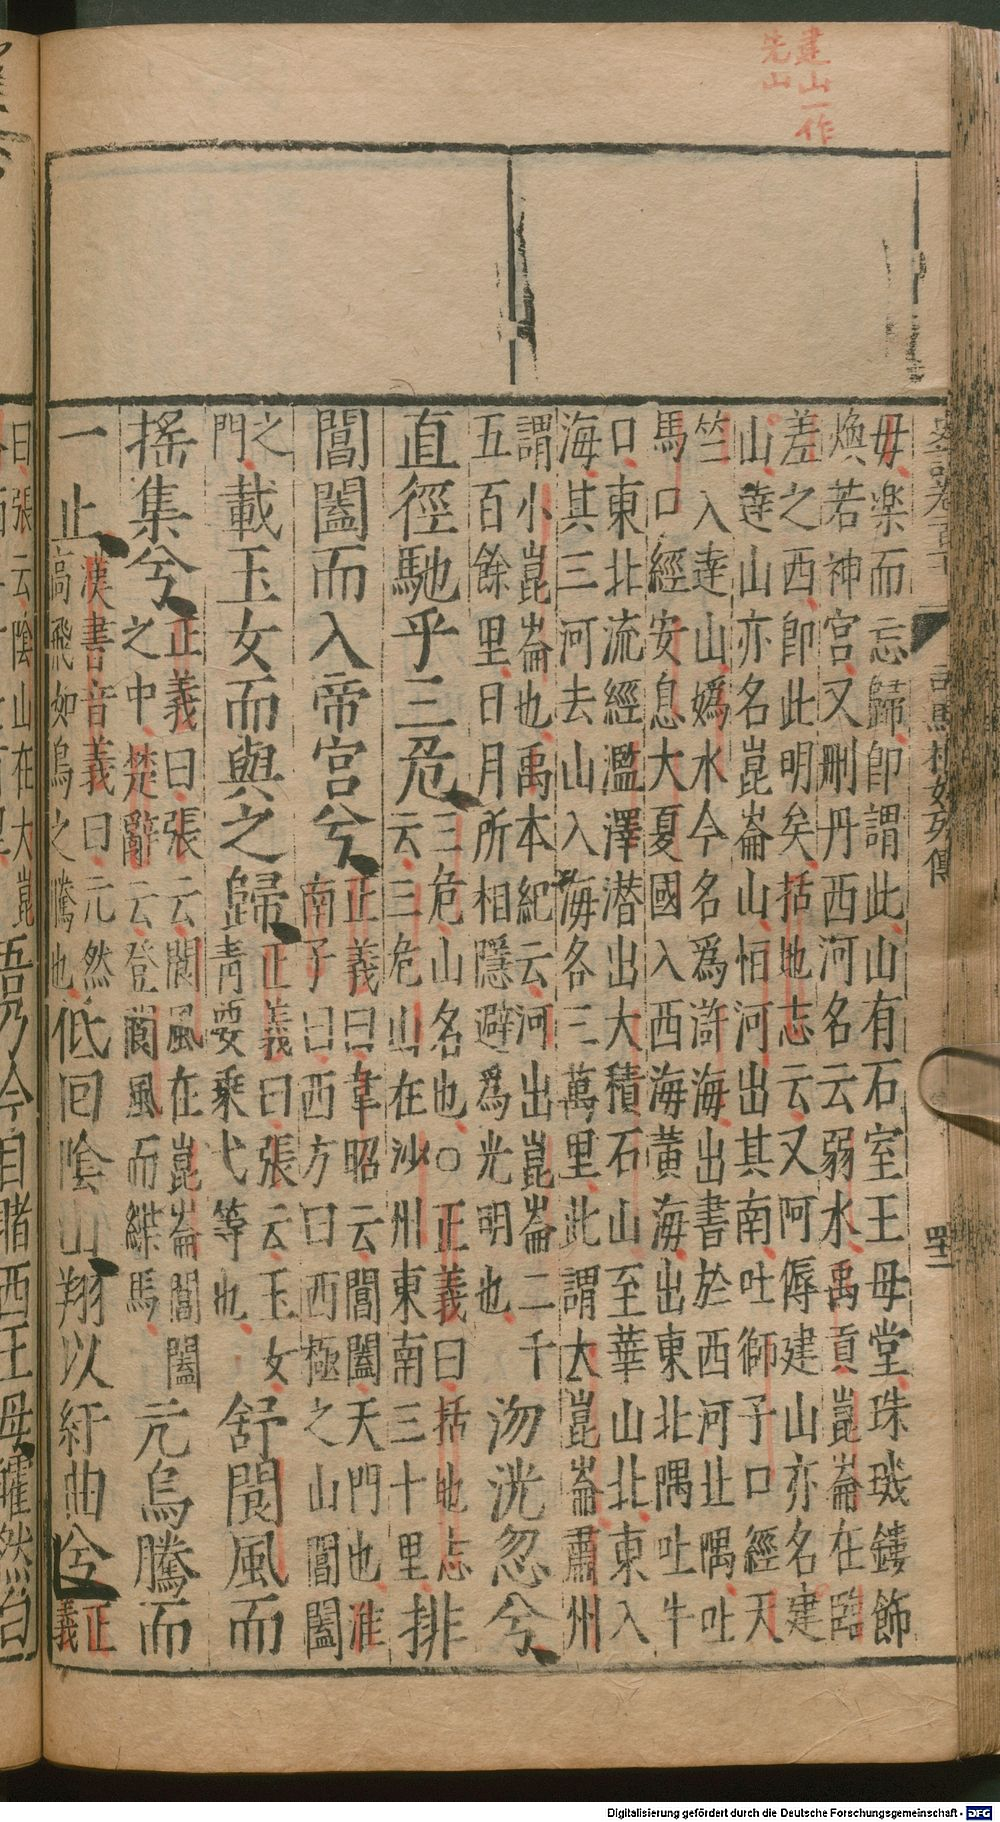 建山一作
先山
司馬相如列傳
毋楽而忘歸即謂此山有石室王母堂珠璣鏤飾
煥若神宮又刪丹西河名云弱水禹貢崑崙在臨
羌之西即此明矣括地志云又阿傉建山亦名建
山達山亦名崑崙山怛河出其南吐獅子口經天
竺入達山媯水今名爲滸海出書於西河北隅吐
馬口經安息大夏國入西海黃海出東北隅吐牛
口東北流經濫澤潜出大積石山至華山北東入
海其三河去山入海各三萬里此謂大崑崙肅州
謂小崑崙也禹本紀云河出崑崙二千
五百餘里日月所相隱避爲光明也
沕洸忽兮
直徑馳乎三危
三危山名也○正義曰括地志
云三危山在沙州東南三十里
排
閶闔而入帝宮兮
正義曰韋昭云閶闔天門也淮
南子曰西方曰西極之山閶闔
之
門
載玉女而與之歸
正義曰張云玉女
青要乗弋等也
舒閬風而
搖集兮
正義曰張云閬風在崑崙閶闔
之中楚辭云登閬風而緤馬
元烏騰而
一止
漢書音義曰元然
高飛如烏之騰也
低回陰山翔以紆曲兮
正
義
曰張云陰山在大崑
吾乃今目睹西王母皬然白
Digitalisierung gefördert durch die Deutsche Forschungsgemeinschaft - DFG